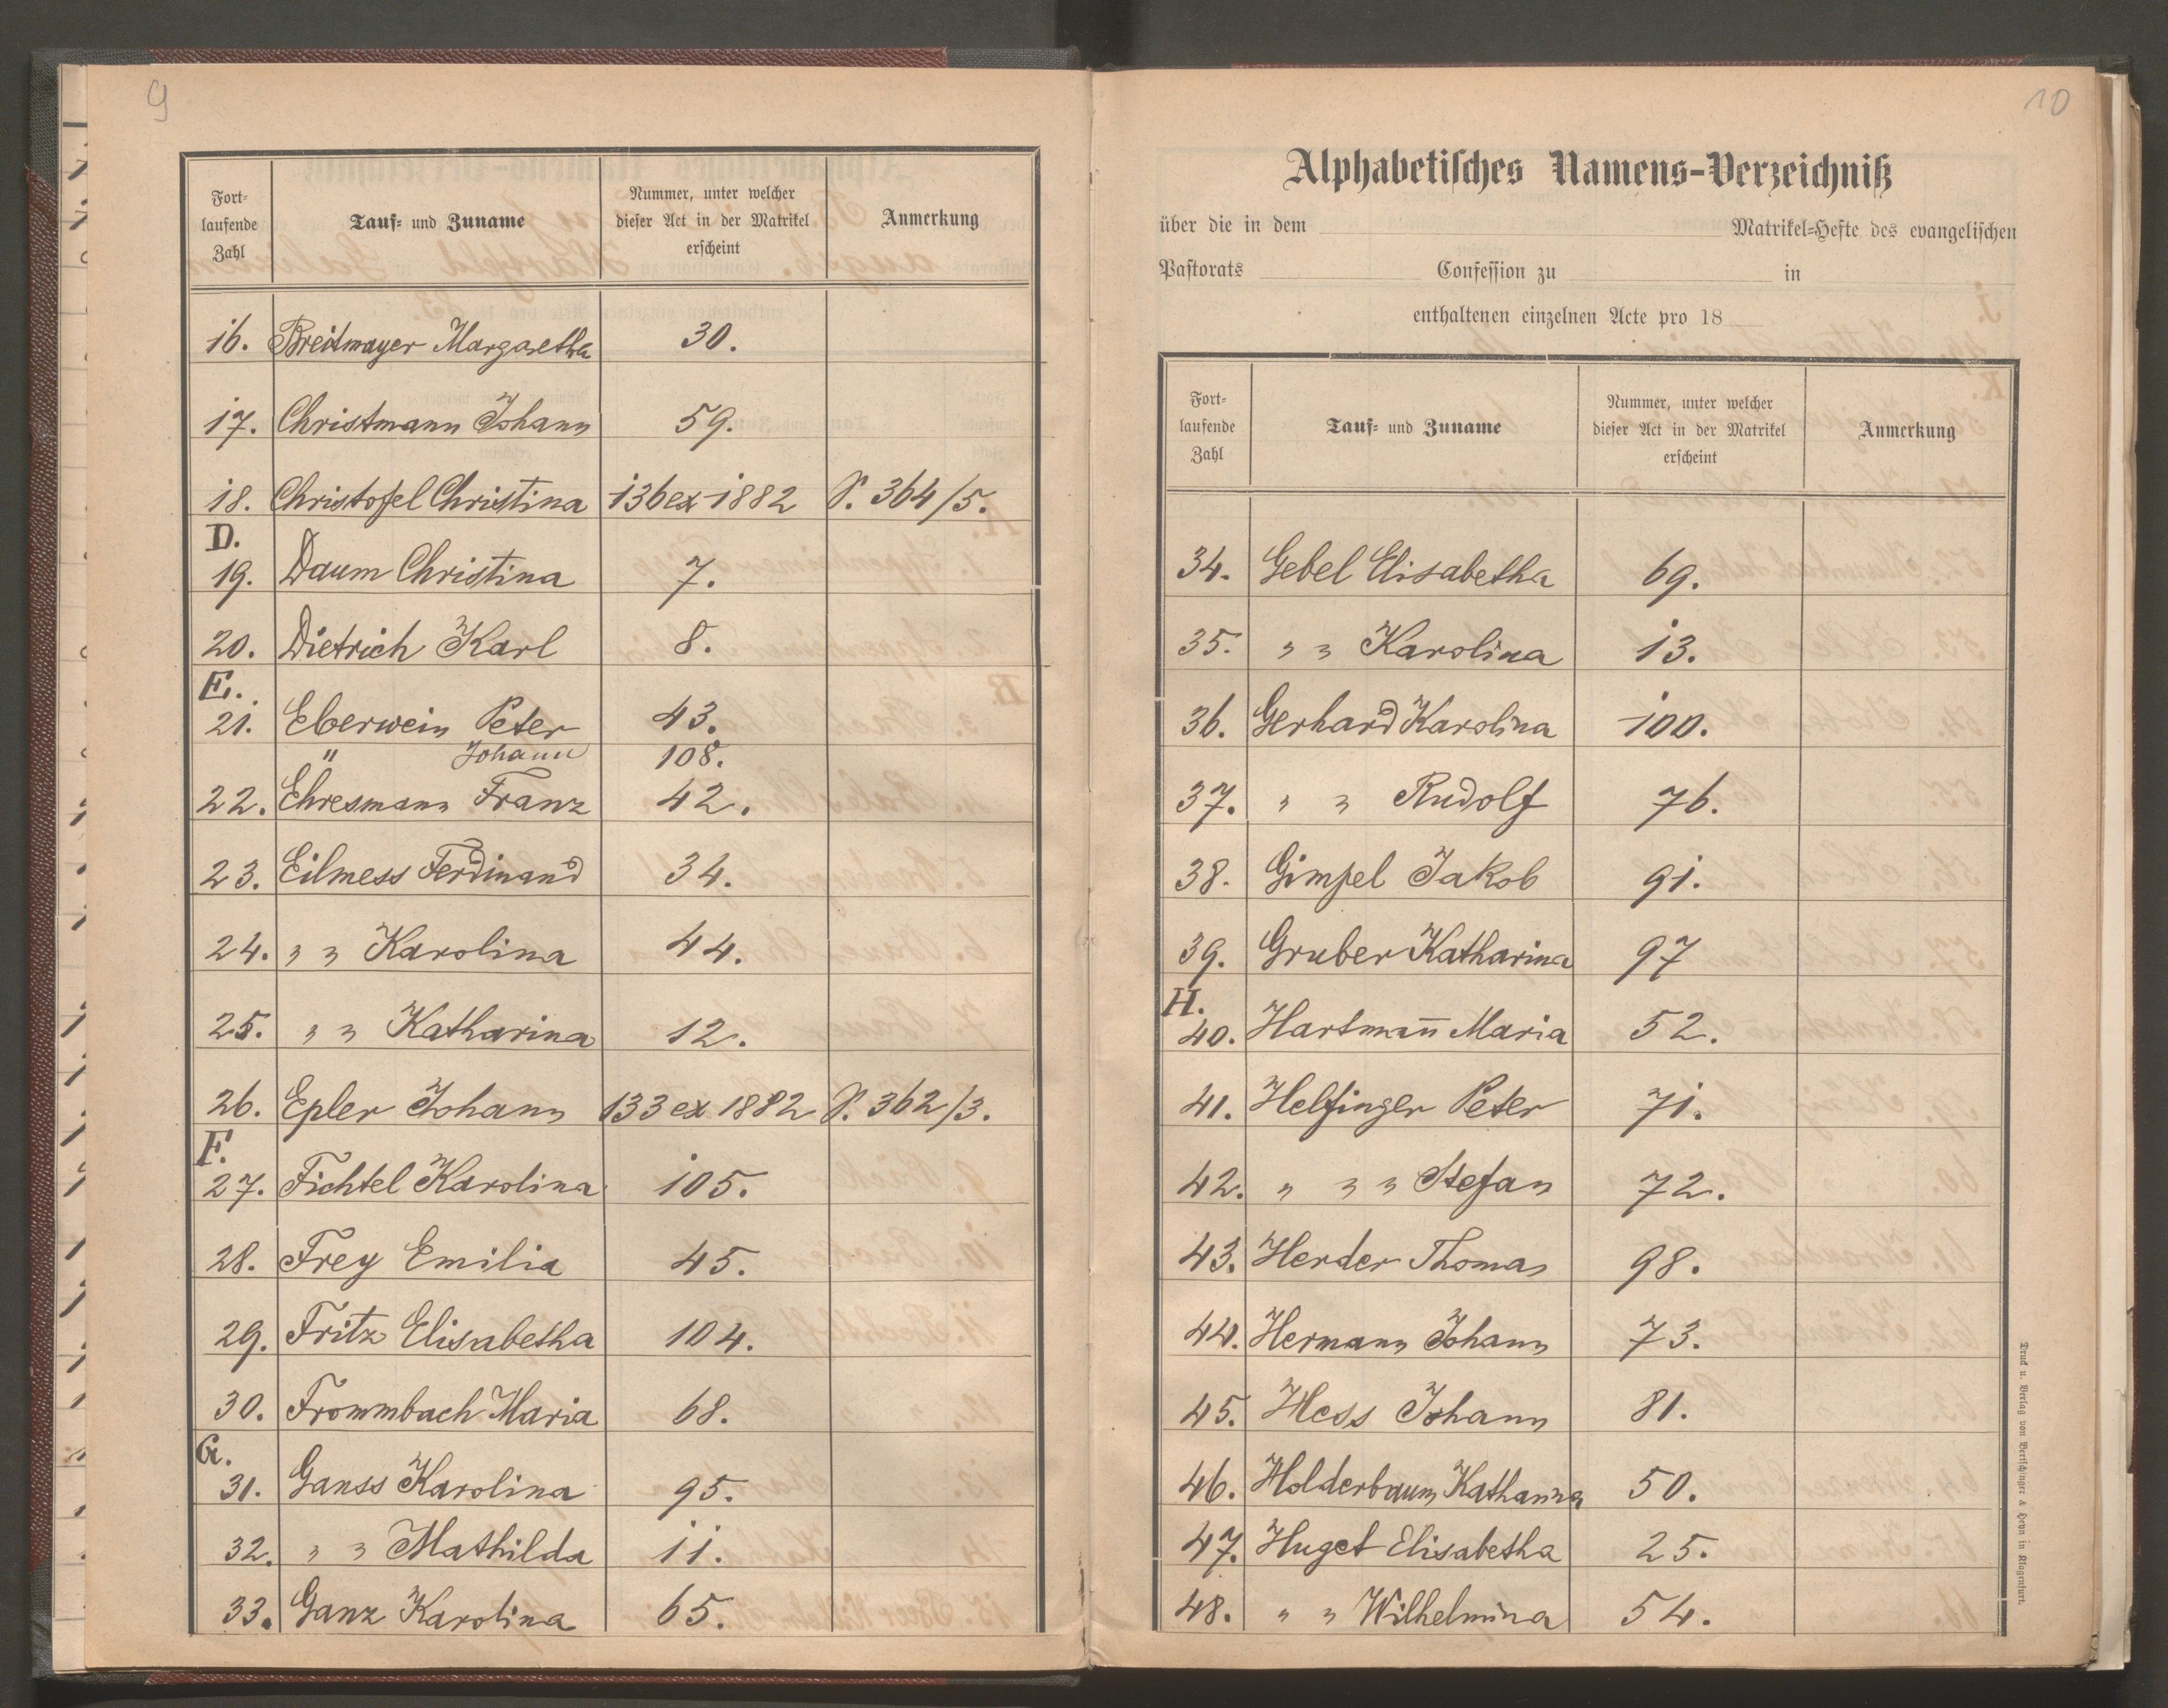 9
Fort-
laufende
Zahl
Tauf- und Zuname
Nummer, unter welcher
dieser Act in der Matrikel
erscheint
Anmerkung
16. Breitmayer Margaretha 30.
17. Christmann Johann 59.
18. Christofel Christina 136 ex 1882 S. 364/5.
D.
19. Daum Christina 7.
20. Dietrich Karl 8.
E.
21. Eberwein Peter 43.
" Johann 108.
22. Ehresmann Franz 42.
23. Eilmess Ferdinand 34.
24. " " Karolina 44.
25. " " Katharina 12.
26. Epler Johann 133 ex 1882 S. 362/3.
F.
27. Fichtel Karolina 105.
28. Frey Emilia 45.
29. Fritz Elisabetha 104.
30. Frommbach Maria 68.
G.
31. Ganss Karolina 95.
32. " " Mathilda 11.
33. Ganz Karolina 65.
10
Alphabetisches Namens-Verzeichniß
über die in dem Matrikel-Hefte des evangelischen
Pastorats Confession zu in
enthaltenen einzelnen Acte pro 18
Fort-
laufende
Zahl
Tauf- und Zuname
Nummer, unter welcher
dieser Act in der Matrikel
erscheint
Anmerkung
34. Gebel Elisabetha 69.
35. " " Karolina 13.
36. Gerhard Karolina 100.
37. " " Rudolf 76.
38. Gimpel Jakob 91.
39. Gruber Katharina 97
H.
40. Hartmañ Maria 52.
41. Helfinger Peter 71.
42. " " " Stefan 72.
43. Herder Thomas 98.
44. Hermann Johann 73.
45. Hess Johann 81.
46. Holderbaum Katharina 50.
47. Huget Elisabetha 25.
48. " " Wilhelmina 54.
Druck u. Verlag von Bertschinger & Heyn in Klagenfurt.